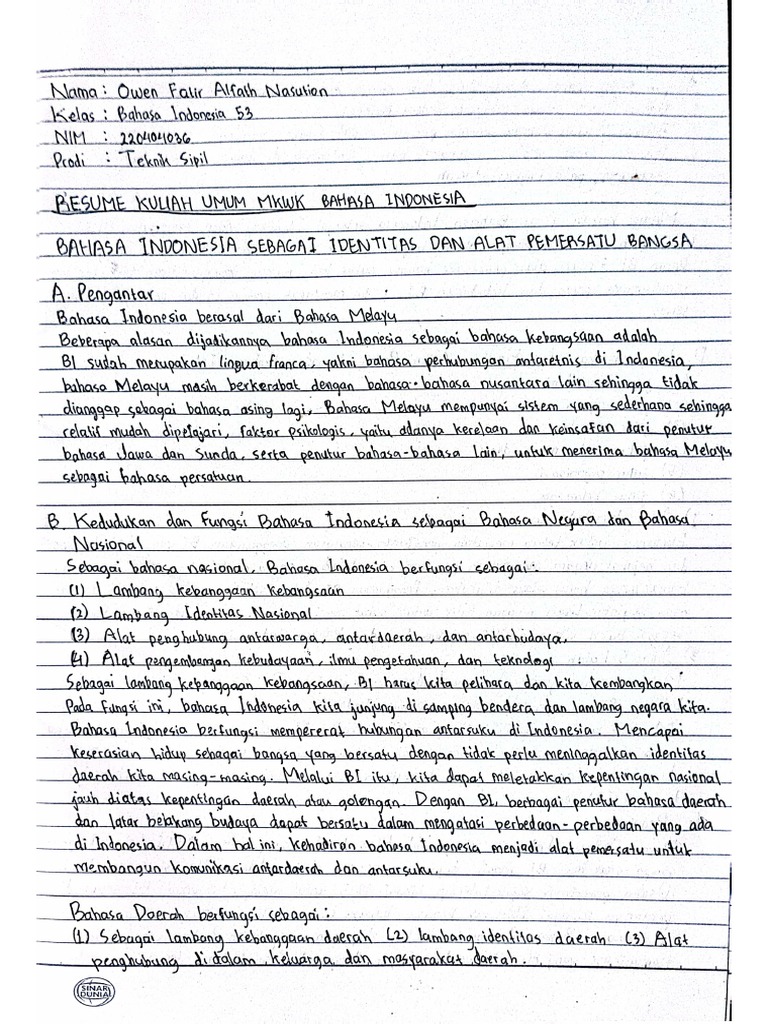 Nama : Owen Fatir Alfath Nasution
Kelas : Bahasa Indonesia 53
NIM : 220404036
Prodi : Teknik Sipil
RESUME KULIAH UMUM MKWK BAHASA INDONESIA
BAHASA INDONESIA SEBAGAI IDENTITAS DAN ALAT PEMERSATU BANGSA
A. Pengantar
Bahasa Indonesia berasal dari Bahasa Melayu
Beberapa alasan dijadikannya bahasa Indonesia sebagai bahasa kebangsaan adalah
BI sudah merupakan lingua franca, yakni bahasa perhubungan antaretnis di Indonesia,
bahasa Melayu masih berkerabat dengan bahasa-bahasa nusantara lain sehingga tidak
dianggap sebagai bahasa asing lagi, Bahasa Melayu mempunyai sistem yang sederhana sehingga
relatif mudah dipelajari, faktor psikologis, yaitu adanya kerelaan dan keinsafan dari penutur
bahasa Jawa dan Sunda, serta penutur bahasa-bahasa lain, untuk menerima bahasa Melayu
sebagai bahasa persatuan.
B. Kedudukan dan Fungsi Bahasa Indonesia sebagai Bahasa Negara dan Bahasa
Nasional
Sebagai bahasa nasional, Bahasa Indonesia berfungsi sebagai:
(1) Lambang kebanggaan kebangsaan
(2) Lambang Identitas Nasional
(3) Alat penghubung antarwarga, antardaerah, dan antarbudaya,
(4) Alat pengembangan kebudayaan, ilmu pengetahuan, dan teknologi
Sebagai lambang kebanggaan kebangsaan, BI harus kita pelihara dan kita kembangkan
Pada fungsi ini, bahasa Indonesia kita junjung di samping bendera dan lambang negara kita.
Bahasa Indonesia berfungsi mempererat hubungan antarsuku di Indonesia. Mencapai
keserasian hidup sebagai bangsa yang bersatu dengan tidak perlu meninggalkan identitas
daerah kita masing-masing. Melalui BI itu, kita dapat meletakkan kepentingan nasional
jauh diatas kepentingan daerah atau golongan. Dengan BI, berbagai penutur bahasa daerah
dan latar belakang budaya dapat bersatu dalam mengatasi perbedaan-perbedaan yang ada
di Indonesia. Dalam hal ini, kehadiran bahasa Indonesia menjadi alat pemersatu untuk
membangun komunikasi antardaerah dan antarsuku.
Bahasa Daerah berfungsi sebagai:
(1) Sebagai lambang kebanggaan daerah (2) lambang identitas daerah (3) Alat
penghubung di dalam keluarga dan masyarakat daerah.
SINAR
DUNIA